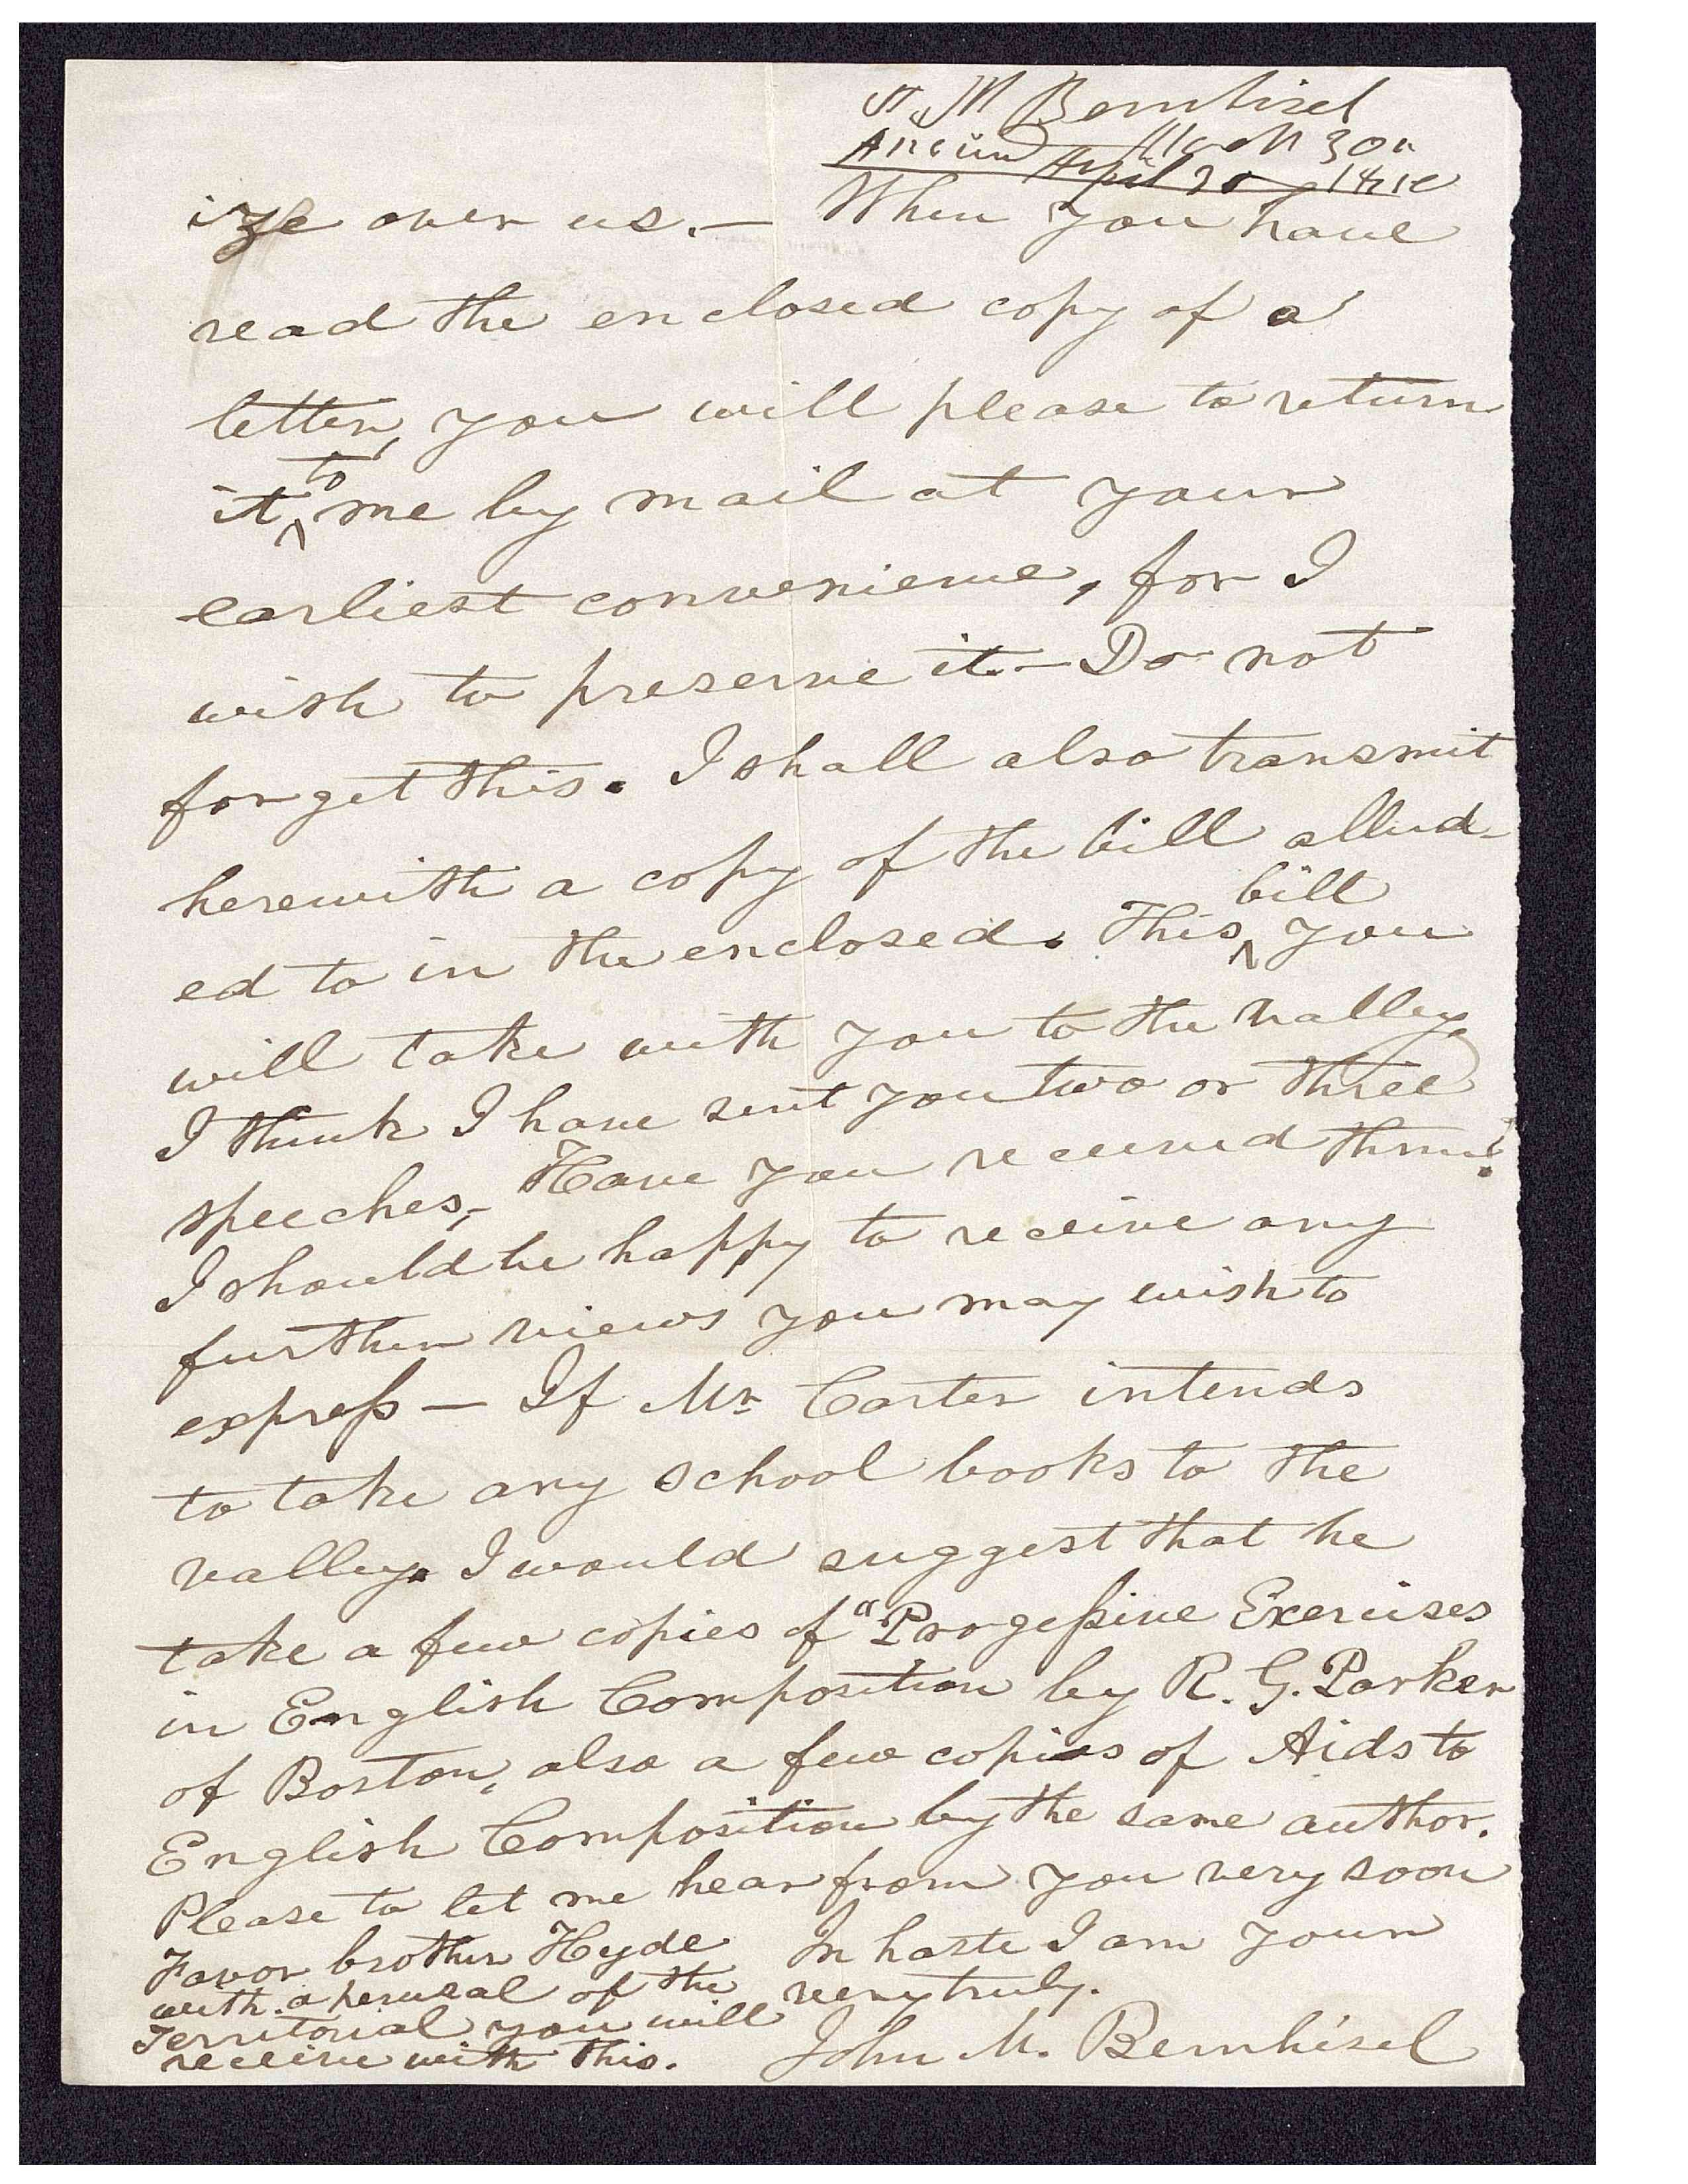 J. M Bernhisel
March 30
April 20
ize over us.— When you have
read the enclosed copy of a
letter, you will please to return
to
it ^ me by mail at your
earliest convenience, for I
wish to preserve it.— Do not
forget this. I shall also transmit
herewith a copy of the bill allud-
bill
ed to in the enclosed. This ^ you
will take with you to the valley
I think I have sent you two or three
speeches,- Have you received them?
I should be happy to receive any
further views you may wish to
express — If Mr Carter intends
to take any school books to the
valley. I would suggest that he
take a few copies of "Progessive Exercises
in English Composition by R. G. Parker
of Boston, also a few copies of Aids to
English Composition by the same author.
Please to let me hear from you very soon
In haste I am your
very truly.
John M. Bernhisel
Favor brother Hyde
with a perusal of the
Territorial you will
receive with this.